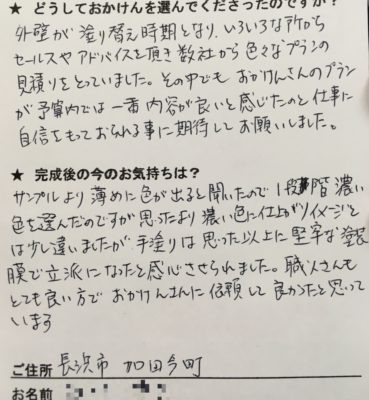 ★ どうしておかけんを選んでくださったのですか？
外壁が塗り替え時期となり、いろいろな所から
セールスやアドバイスを頂き数社から色々なプランの
見積りをとっていました。その中でも おかけんさんのプラン
が予算内では一番内容が良いと感じたのと仕事に
自信をもっておられる事に期待してお願いしました。
★ 完成後の今のお気持ちは？
サンプルより薄めに色が出ると聞いたので1段階濃い
色を選んだのですが思ったより濃い色に仕上がりイメージと
は少し違いましたが、手塗りは思った以上に堅牢な塗装
膜で立派になったと感心させられました。職人さんも
とても良い方で おかけんさんに依頼して良かったと思って
います
ご住所 長浜市 加田今町
お名前